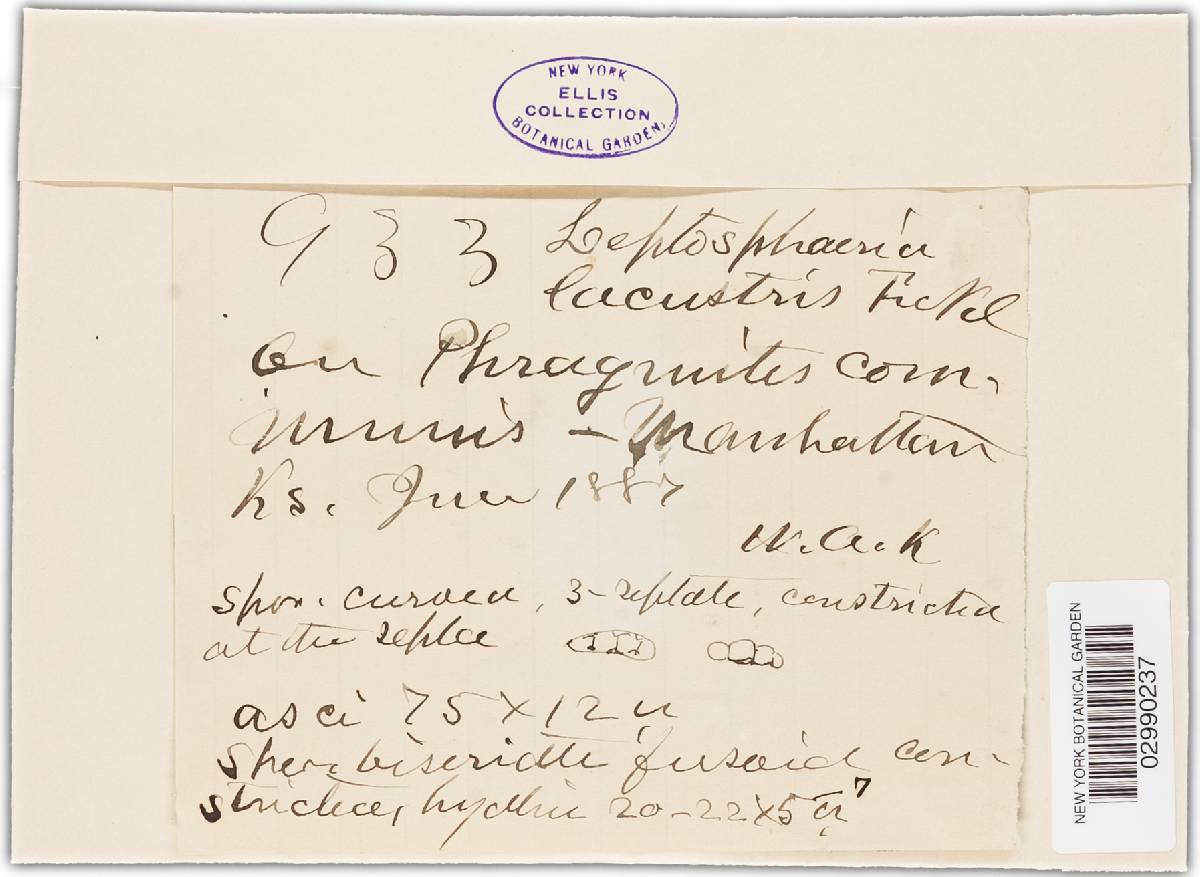 NEW YORK
ELLIS
COLLECTION
BOTANICAL GARDEN
933 Leptosphaeria
lacustris Fckl
on Phragmites com-
munis - Manhattan
Ks. June 1887
W.A.K
Spor. curved, 3-septate, constricted
at the septa
asci 75 x 12 u
Spor. biseriate fusoid con-
stricted, hyalin 20-22 x 5 u 7
NEW YORK BOTANICAL GARDEN
02990237